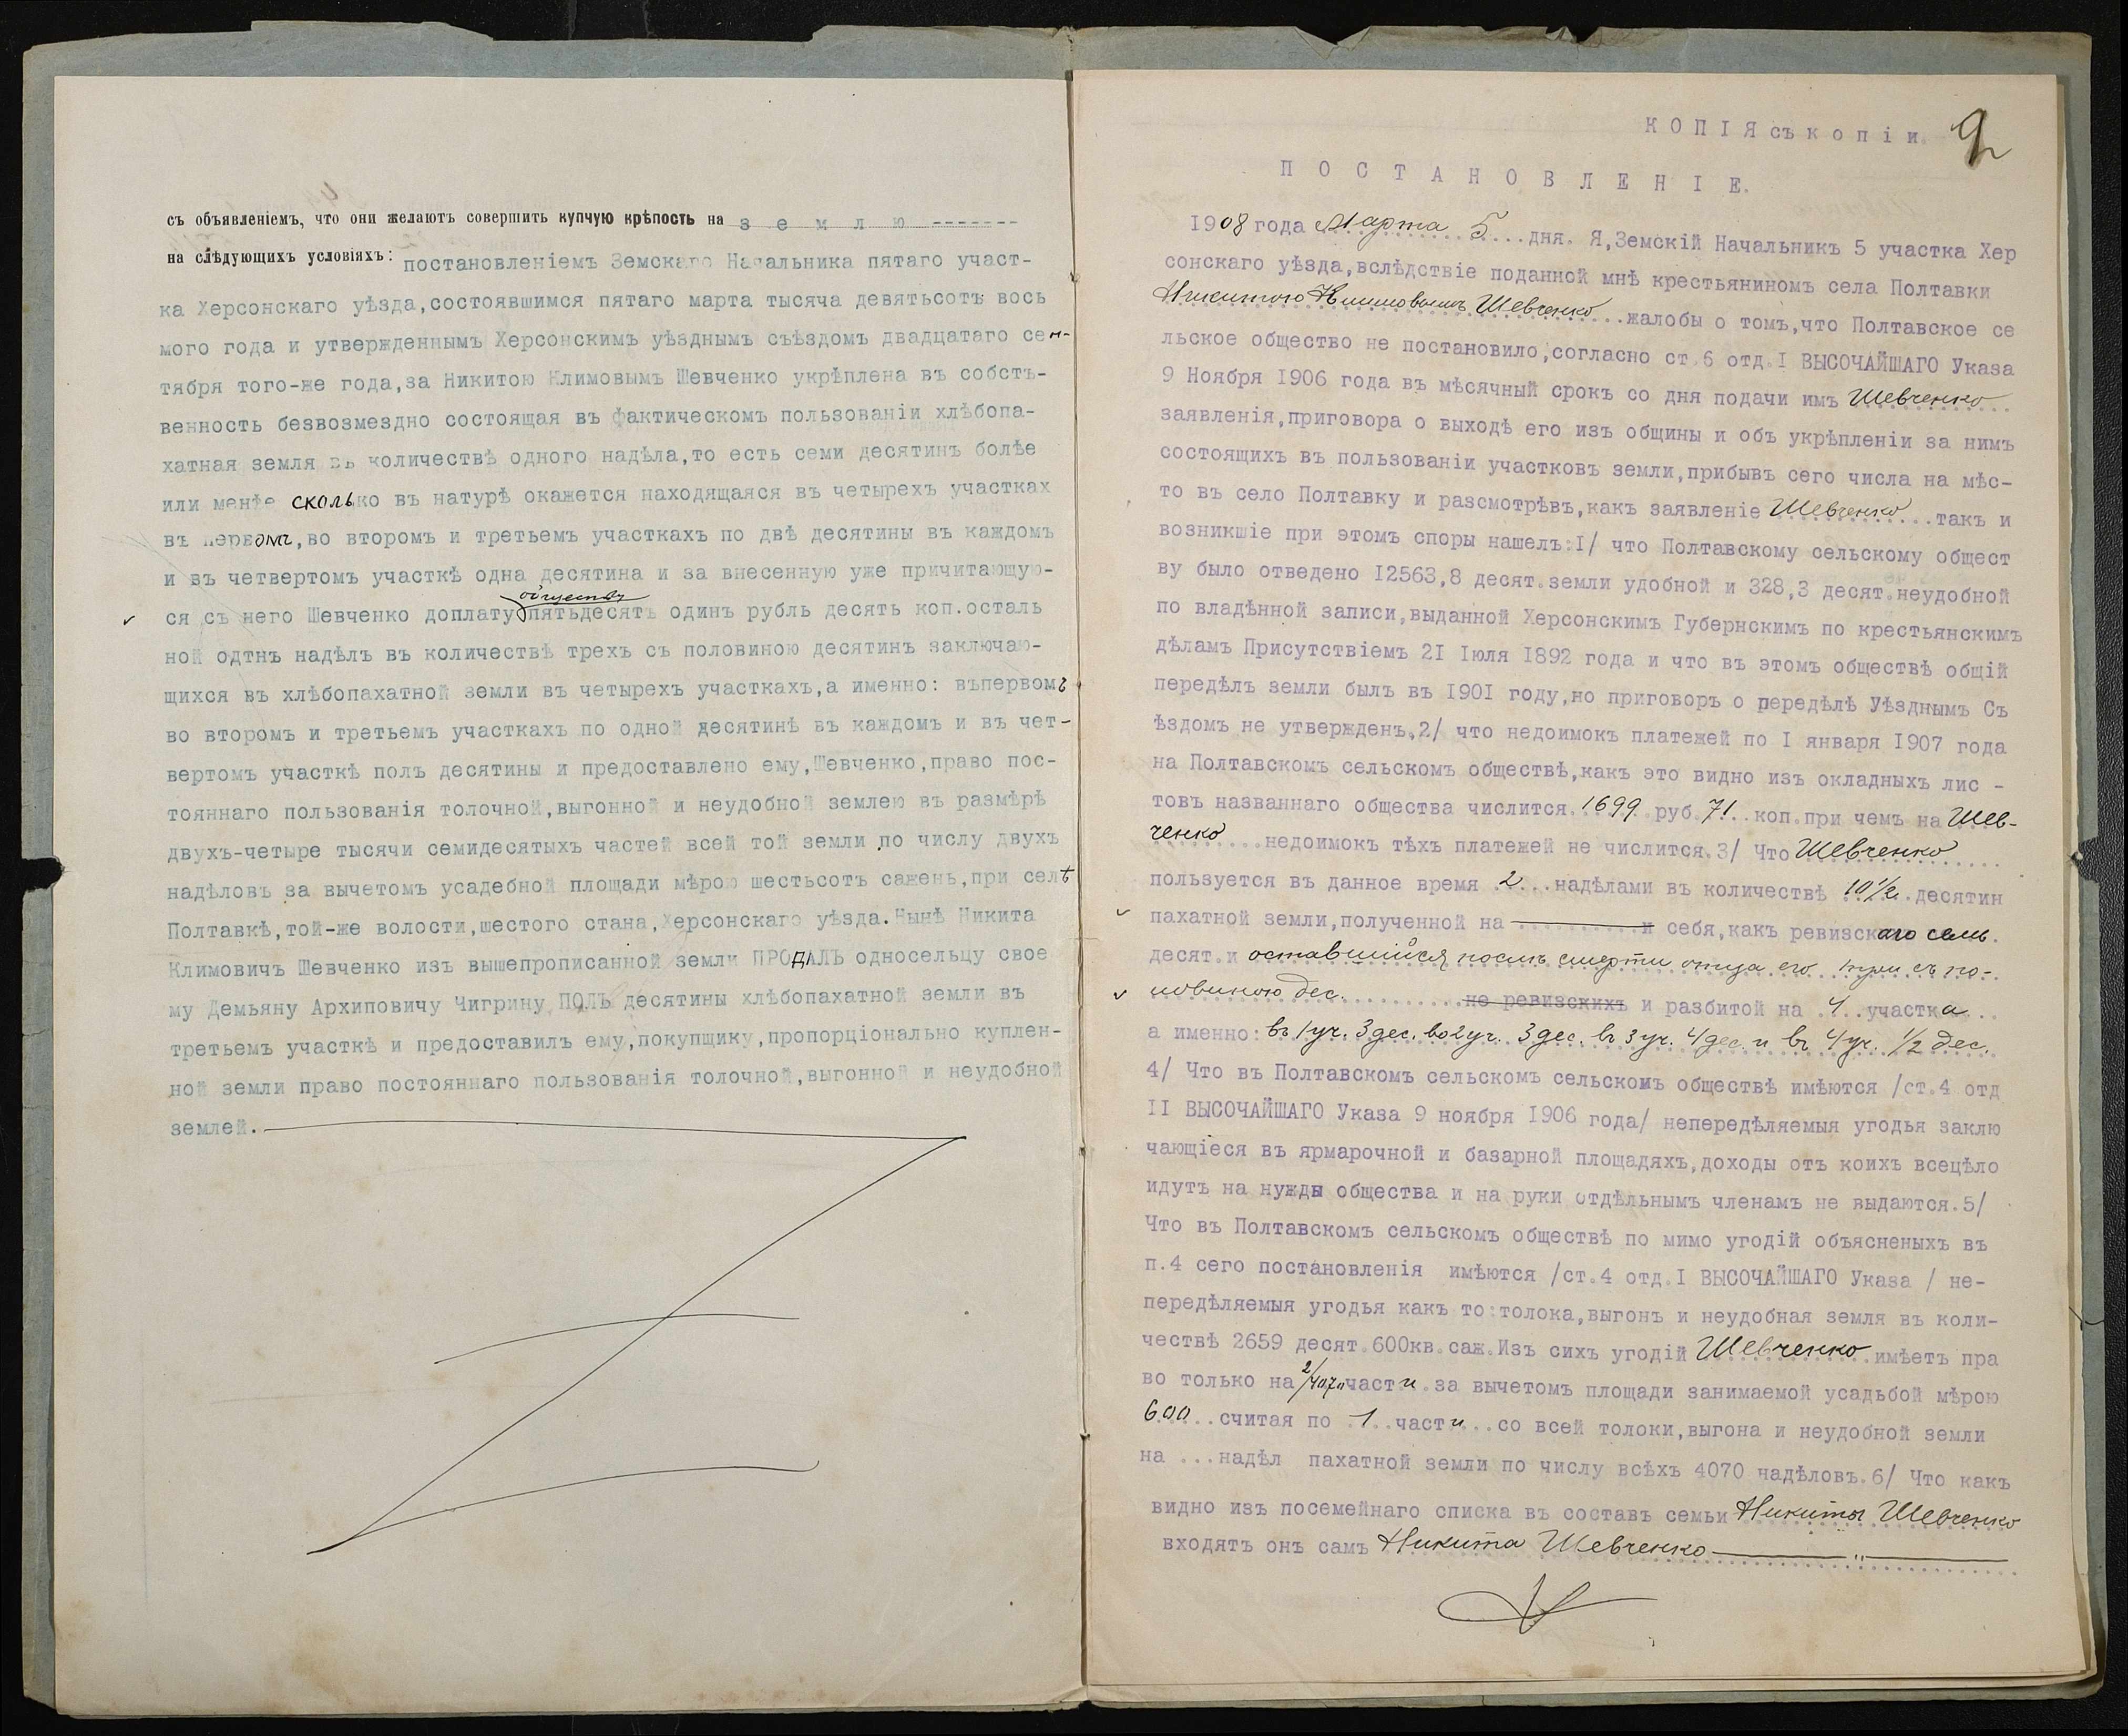 съ объявленіемъ, что они желаютъ совершить купчую крѣпость на з е м л ю -------
на слѣдующихъ условіяхъ: постановленіемъ Земскаго Начальника пятаго участ-
ка Херсонскаго уѣзда,состоявшимся пятаго марта тысяча девятьсотъ вось
мого года и утвержденнымъ Херсонскимъ уѣзднымъ съѣздомъ двадцатаго сен-
тября того-же года,за Никитою Климовымъ Шевченко укрѣплена въ собстъ-
венность безвозмездно состоящая въ фактическомъ пользованіи хлѣбопа-
хатная земля въ количествѣ одного надѣла,то есть семи десятинъ болѣе
или менѣе сколько въ натурѣ окажется находящаяся въ четырехъ участках
въ первомъ,во второмъ и третьемъ участкахъ по двѣ десятины въ каждомъ
и въ четвертомъ участкѣ одна десятина и за внесенную уже причитающую-
обществу
ся съ него Шевченко доплату пятьдесятъ одинъ рубль десять коп.осталь
ной одтнъ надѣлъ въ количествѣ трехъ съ половиною десятинъ заключаю-
щихся въ хлѣбопахатной земли въ четырехъ участкахъ,а именно: въпервомъ
во второмъ и третьемъ участкахъ по одной десятинѣ въ каждомъ и въ чет-
вертомъ участкѣ полъ десятины и предоставлено ему,Шевченко,право пос-
тояннаго пользованія толочной,выгонной и неудобной землею въ размѣрѣ
двухъ-четыре тысячи семидесятыхъ частей всей той земли по числу двухъ
надѣловъ за вычетомъ усадебной площади мѣрою шестьсотъ сажень,при селѣ
Полтавкѣ,той-же волости,шестого стана,Херсонскаго уѣзда.Нынѣ Никита
Климовичъ Шевченко изъ вышепрописанной земли ПРОДАЛЪ односельцу свое
му Демьяну Архиповичу Чигрину ПОЛЪ десятины хлѣбопахатной земли въ
третьемъ участкѣ и предоставилъ ему,покупщику,пропорціонально куплен-
ной земли право постояннаго пользованія толочной,выгонной и неудобной
землей.
К О П І Я съ к о п і и. 9
П О С Т А Н О В Л Е Н І Е.
1908 года Марта 5 дня. Я,Земскій Начальникъ 5 участка Хер
сонскаго уѣзда,вслѣдствіе поданной мнѣ крестьяниномъ села Полтавки
Никитою Климовымъ Шевченко...жалобы о томъ,что Полтавское се
льское общество не постановило,согласно ст.6 отд.I ВЫСОЧАЙШАГО Указа
9 Ноября 1906 года въ мѣсячный срокъ со дня подачи имъ Шевченко
заявленія,приговора о выходѣ его изъ общины и объ укрѣпленіи за нимъ
состоящихъ въ пользованіи участковъ земли,прибывъ сего числа на мѣс-
то въ село Полтавку и разсмотрѣвъ,какъ заявленіе Шевченко...такъ и
возникшіе при этомъ споры нашелъ:I/ что Полтавскому сельскому общест
ву было отведено 12563,8 десят.земли удобной и 328,3 десят.неудобной
по владѣнной записи,выданной Херсонскимъ Губернскимъ по крестьянскимъ
дѣламъ Присутствіемъ 21 Іюля 1892 года и что въ этомъ обществѣ общій
передѣлъ земли былъ въ 1901 году,но приговоръ о передѣлѣ Уѣзднымъ Съ
ѣздомъ не утвержденъ,2/ что недоимокъ платежей по I января 1907 года
на Полтавскомъ сельскомъ обществѣ,какъ это видно изъ окладныхъ лис -
товъ названнаго общества числится.1699 руб.71..коп.при чемъ на Шев-
ченко....недоимокъ тѣхъ платежей не числится.3/ Что Шевченко
пользуется въ данное время 2...надѣлами въ количествѣ 10 1/2.десятин
пахатной земли,полученной на ........... и себя,какъ ревизскаго семь.
десят.и оставшійся послѣ смерти отца его три съ по-
ловиною дес...........не ревизскихъ и разбитой на .4..участка...
а именно: въ 1уч. 3дес. во2уч. 3дес. въ 3уч. 4дес. и въ 4уч. 1/2 дес.
4/ Что въ Полтавскомъ сельскомъ сельскомъ обществѣ имѣются /ст.4 отд
II ВЫСОЧАЙШАГО Указа 9 ноября 1906 года/ непередѣляемыя угодья заклю
чающіеся въ ярмарочной и базарной площадяхъ,доходы отъ коихъ всецѣло
идутъ на нужды общества и на руки отдѣльнымъ членамъ не выдаются.5/
Что въ Полтавскомъ сельскомъ обществѣ по мимо угодій объясненыхъ въ
п.4 сего постановленія имѣются /ст.4 отд.I ВЫСОЧАЙШАГО Указа / не-
передѣляемыя угодья какъ то:толока,выгонъ и неудобная земля въ коли-
чествѣ 2659 десят.600кв.саж.Изъ сихъ угодій Шевченко.имѣетъ пра
во только на 2/4070 части.за вычетомъ площади занимаемой усадьбой мѣрою
600...считая по .1..части...со всей толоки,выгона и неудобной земли
на ...надѣл пахатной земли по числу всѣхъ 4070 надѣловъ.6/ Что какъ
видно изъ посемейнаго списка въ составъ семьи Никиты Шевченко
входятъ онъ самъ Никита Шевченко